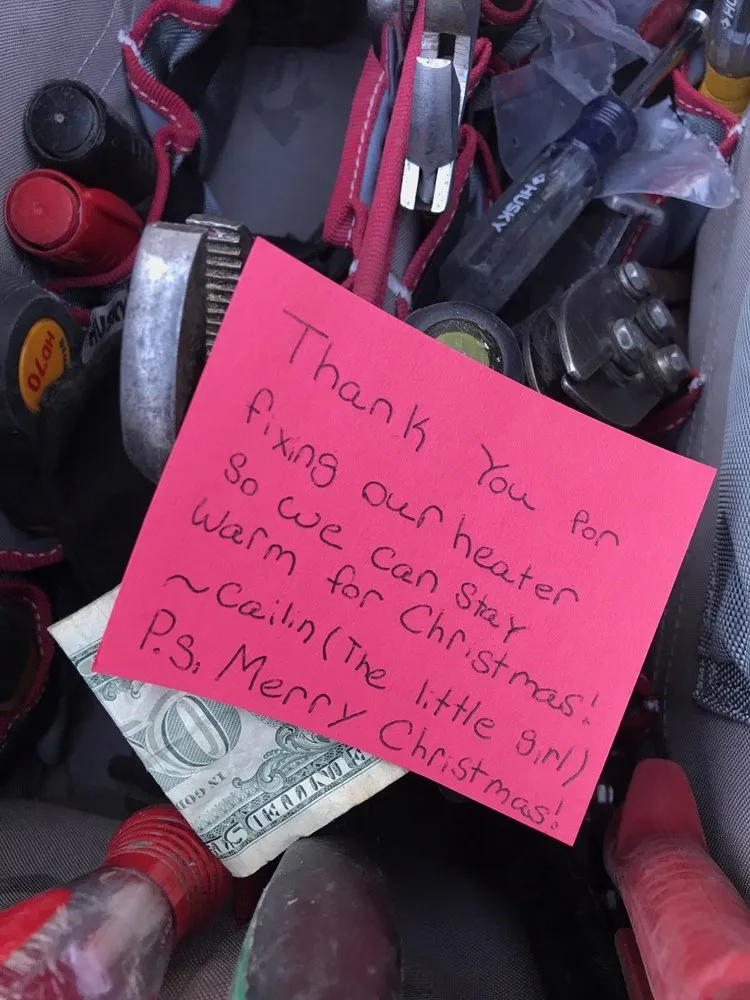 HUSKY
HUSKY
HD70
Thank You for
fixing our heater
So we can stay
warm for Christmas!
~Cailin (The little girl)
P.S. Merry Christmas!
IN GOD
UNITED S